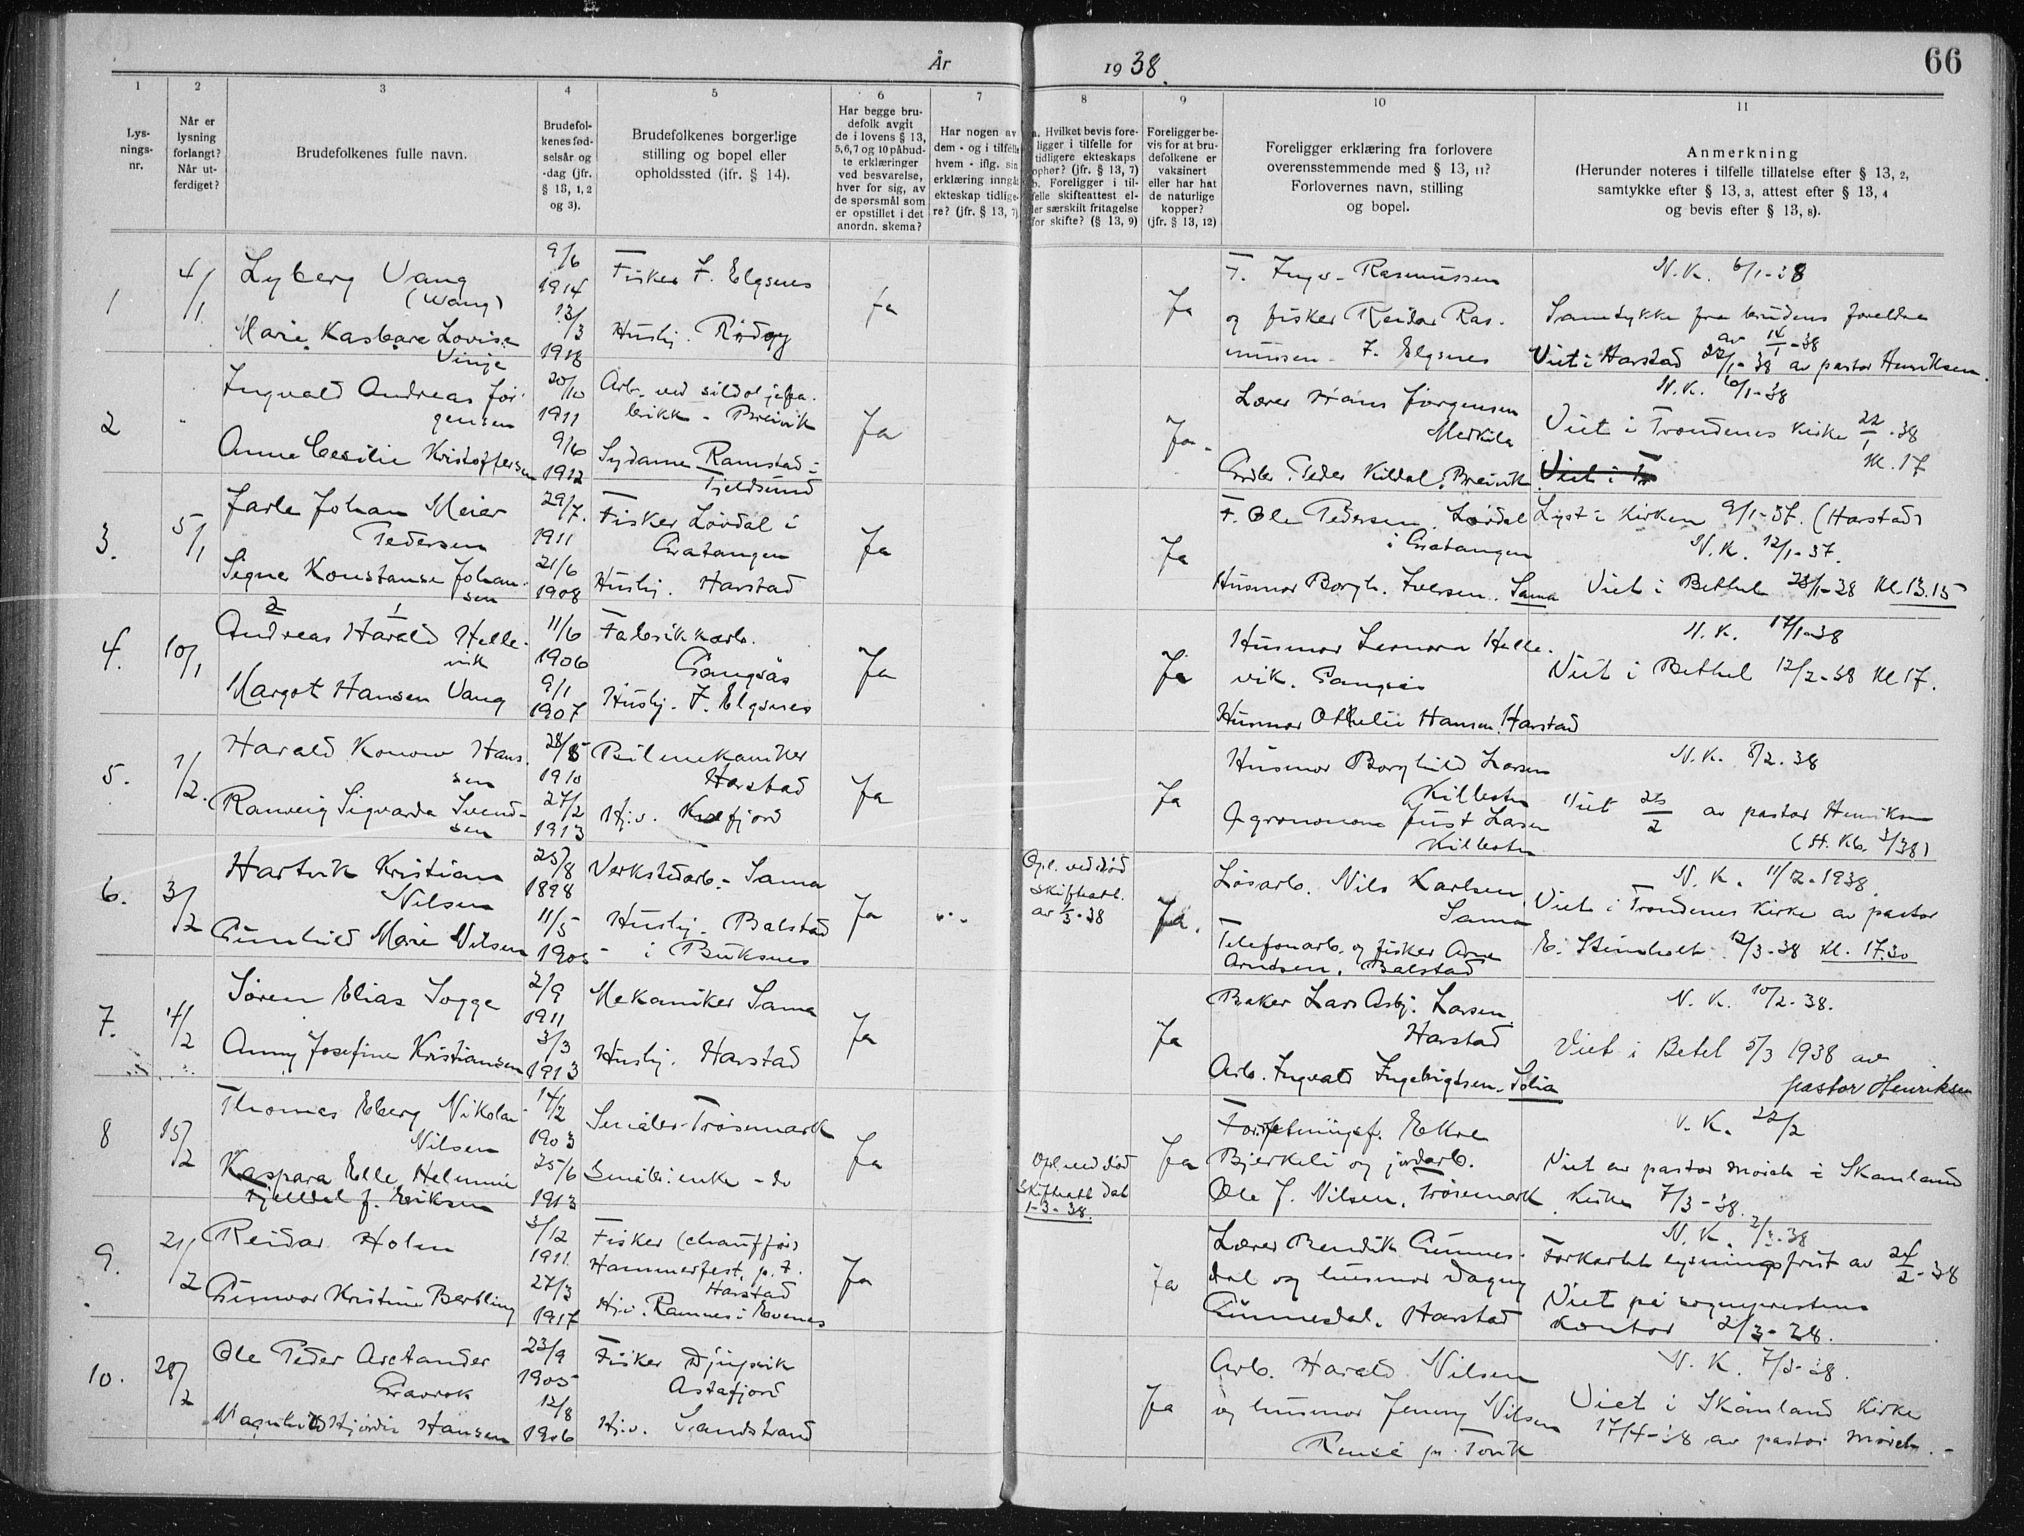 År 1938.
66
1
2
3
4
5
6
7
8
9
10
11
Lys-
nings-
nr.
Når er
lysning
forlangt?
Når ut-
ferdiget?
Brudefolkenes fulle navn.
Brudefol-
kenes fød-
selsår og
-dag (jfr.
§ 13, 1, 2
og 3).
Brudefolkenes borgerlige
stilling og bopel eller
opholdssted (ifr. § 14).
Har begge bru-
defolk avgit
de i lovens § 13,
5, 6, 7 og 10 påbud-
te erklæringer
ved besvarelse,
hver for sig, av
de spørsmål som
er opstillet i det
anordn. skema?
Har nogen av
dem - og i tilfelle
hvem - iflg. sin
erklæring inngåt
ekteskap tidlige-
re? (jfr. § 13, 7)
a. Hvilket bevis fore-
ligger i tilfelle for
tidligere ekteskaps
ophør? (jfr. § 13, 7)
b. Foreligger i til-
felle skifteattest el-
ler særskilt fritagelse
for skifte? (§ 13, 9)
Foreligger be-
vis for at bru-
defolkene er
vaksinert
eller har hat
de naturlige
kopper?
(jfr. § 13, 12)
Foreligger erklæring fra forlovere
overensstemmende med § 13, 11?
Forlovernes navn, stilling
og bopel.
Anmerkning
(Herunder noteres i tilfelle tillatelse efter § 13, 2,
samtykke efter § 13, 3, attest efter § 13, 4
og bevis efter § 13, 8).
1
4/1
Lyberg Vang
(Wang)
Marie Kasbare Lovise
Vinje
9/6
1914
13/3
1918
Fisker F. Elgsnes
Husbj. Rödøy
Ja
Ja
F. Ingv. Rasmussen
og fisker Reidar Ras-
mussen - F. Elgsnes
N.K. 6/1-38
Samtykke fra brudens foreldre
av 14/1-38
Viet i Harstad 22/1-38 av pastor Henriksen.
2
"
Ingvald Andreas Jör-
gensen
Anne Cecilie Kristoffersen
20/10
1911
9/6
1912
Arb. ved sildoljefa-
brikk - Breivik
Sydame Ramstad i
Tjeldsund
Ja
Ja.
Lærer Hans Jørgensen
Medkila
Arb. Peder Kildal, Breivik
N.K. 10/1-38
Viet i Trondenes kirke 22/1-38
kl. 17
Viet i Tr
3.
5/1
Jarle Johan Meier
Pedersen
Signe Konstanse Johan-
sen
29/7.
1911
21/6
1908
Fisker Løvdal i
Gratangen
Husbj. Harstad
Ja
Ja
F. Ole Pedersen, Løvdal
i Gratangen
Husmor Borgh. Iversen. Sama
Lyst i kirken 9/1-37. (Harstad)
N.K. 12/1-37.
Viet i Bethel 23/1-38 kl. 13.15
4.
10/1
2 1
Andreas Harald Helle-
vik
Margot Hansen Vang
11/6
1906
9/1
1907
Fabrikkarb.
Gangsås
Husbj. F. Elgsnes
Ja
Ja
Husmor Leonora Helle-
vik. Gangsås
Husmor Othelie Hansen, Harstad
N.K. 17/1-38
Viet i Bethel 12/2-38 kl 17.
5.
1/2.
Harald Konow Hans-
sen
Ranveig Sigvarda Svend-
sen
28/5
1910
27/2
1913
Bilmekaniker
Harstad
Hj.v. Kvefjord
Ja
Ja
Husmor Borghild Larsen
Killbotn
Agronom Just Larsen
Killbotn
N.K. 8/2.38
Viet 26/2 av pastor Henriksen
(H. Kb. 3/38)
6.
3/2
Hartvik Kristian
Nilsen
Gunhild Marie Nilsen
25/8
1898
11/5
1905
Verkstedarb. - Sama
Husbj. Balstad
i Buksnes
Ja
Opl. ved död
skifteatt.
av 2/3-38
Ja.
Løsarb. Nils Karlsen
Sama
Telefonarb. og fisker Arne
Arntsen, Balstad
N.K. 11/2-1938.
Viet i Trondenes kirke av pastor
E. Steinholt 12/3-38 kl. 17.30
7.
4/2
Søren Elias Sogge
Anny Josefine Kristiansen
2/9
1911
3/3
1913
Mekaniker Sama
Husbj. Harstad
Ja
Ja
Baker Lars Asbj. Larsen.
Harstad
Arb. Ingvald Ingebrigtsen. Solia
N.K. 10/2-38.
Viet i Betel 5/3 1938 av
pastor Henriksen
8
15/2
Thomas Eberg Nikolai
Nilsen
Kaspara Elle Helmine
Fjelldal f. Eriksen
14/2
1903
25/6
1913
Småbr. Trøsemark
Småbr. enke - do
Ja
Opl. ved död
skifteatt. dat
1-3-38.
Ja
Forretningsf. Ekre
Bjerkeli og jordarb.
Ole J. Nilsen, Trösemark
N.K. 22/2
Viet av pastor Mörch i Skånland
kirke 7/3-38.
9.
21/2
Reidar Holm
Gunvor Kristine Bertling
3/12
1911.
27/3
1917
Fisker (chauffør)
Hammerfest, p.t.
Harstad
Hj.v. Ramnes i Evenes
Ja
Ja
Lærer Bendik Gunnes-
dal og husmor Dagny
Gunnesdal. Harstad
N.K. 2/3-38
Forkortet lysningsfrist av 24/2-38
Viet på sogneprestens
kontor 2/3-38.
10.
28/2
Ole Peder Arctander
Gravrok
Magnhild Hjördis Hansen
23/9
1905
12/8
1906
Fisker Djupvik
Astafjord
Hj.v. Sandstrand
Ja
Arb. Harald Nilsen
og husmor Jenny Nilsen
Renså pr. Tovik
N.K. 7/3-38.
Viet i Skånland kirke
17/4-38 av pastor Mörch. -